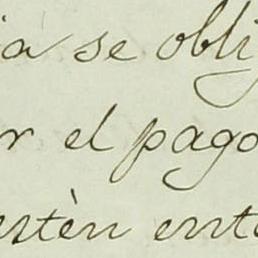 ia se obli
r el pago
estèn ent